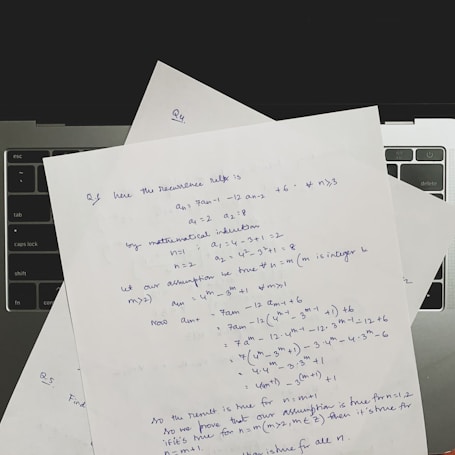 Q4.
Q.1 here the recurrence is
aₙ = 7aₙ₋₁ - 12 aₙ₋₂ + 6 · ∀ n≥3
a₁=2 a₂=8
by mathematical induction
n=1 , a₁ = 4-3+1 = 2
n=2 a₂ = 4²-3²+1 = 8
let our assumption be true ∀ n=m (m is integer &
m>2) aₘ = 4ᵐ - 3ᵐ + 1 ∀ m>1
Now aₘ₊ = 7aₘ - 12 aₘ₋₁ + 6
= 7aₘ - 12(4ᵐ⁻¹ - 3ᵐ⁻¹ + 1) + 6
= 7aᵐ - 12·4ᵐ⁻¹ - 12·3ᵐ⁻¹ - 12 + 6
= 7(4ᵐ - 3ᵐ + 1) - 3·4ᵐ - 4·3ᵐ - 6
= 4·4ᵐ - 3·3ᵐ + 1
= 4(m+1) - 3(m+1) + 1
so the result is true for n=m+1
so we prove that our assumption is true for n=1,2
if it's true for n=m (m>2, m∈Z) then it's true for
n=m+1.
is true for all n.
Q.5
Find
esc
tab
caps lock
shift
fn
control
delete